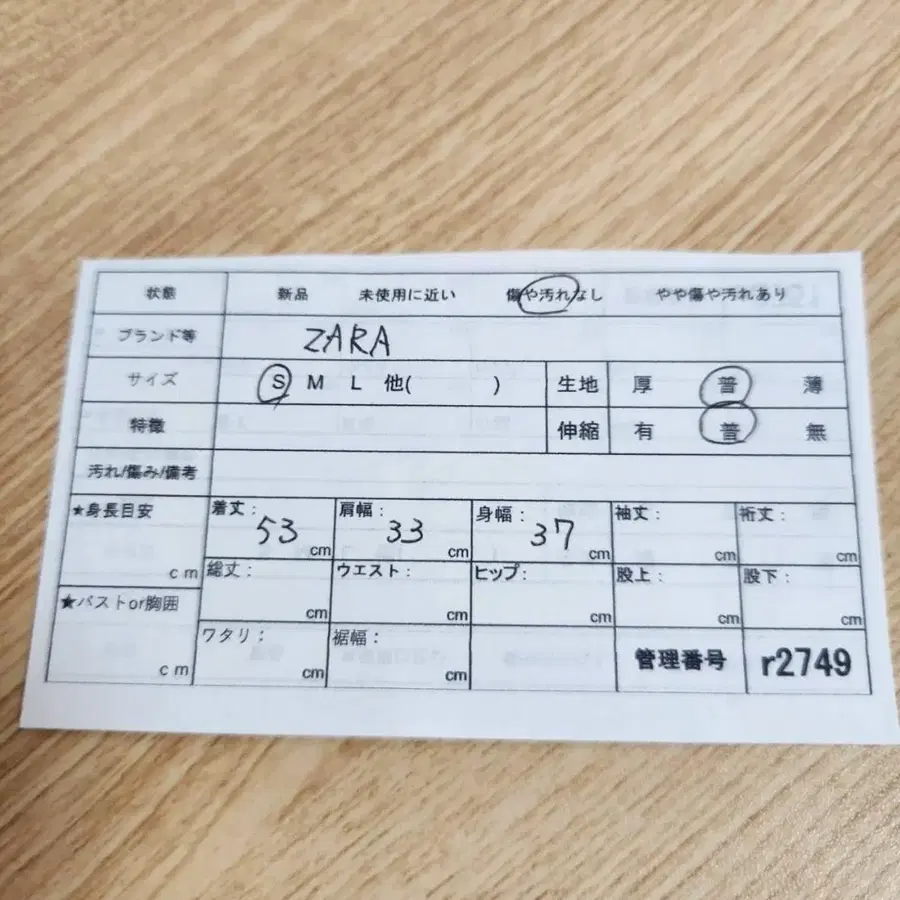 状態 新品 未使用に近い 傷や汚れなし やや傷や汚れあり
ブランド等 ZARA
サイズ S M L 他( ) 生地 厚 普 薄
特徴 伸縮 有 普 無
汚れ/傷み/備考
★身長目安 cm 着丈: 53 cm 肩幅: 33 cm 身幅: 37 cm 袖丈: cm 裄丈: cm
総丈: cm ウエスト: cm ヒップ: cm 股上: cm 股下: cm
★バストor胸囲 cm ワタリ: cm 裾幅: cm 管理番号 r2749